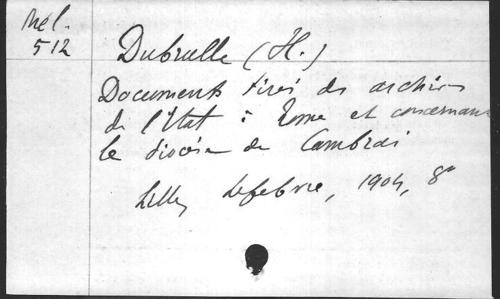 Mél.
512
Dubrulle (H.)
Documents tirés des archives
de l'État à Rome et concernant
le diocèse de Cambrai
Lille, Lefebvre, 1904, 8°